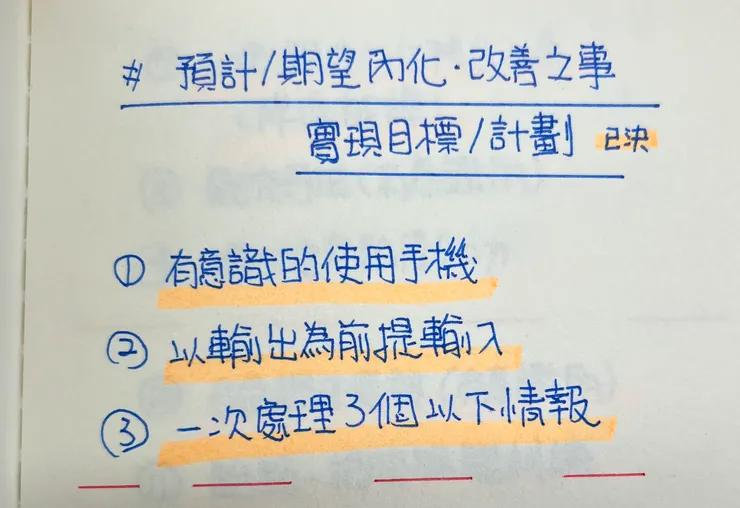 # 預計/期望內化·改善之事
實現目標/計劃 已決
① 有意識的使用手機
② 以輸出為前提輸入
③ 一次處理3個以下情報